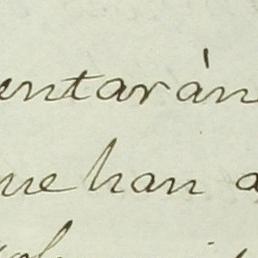 entarán
ue han a